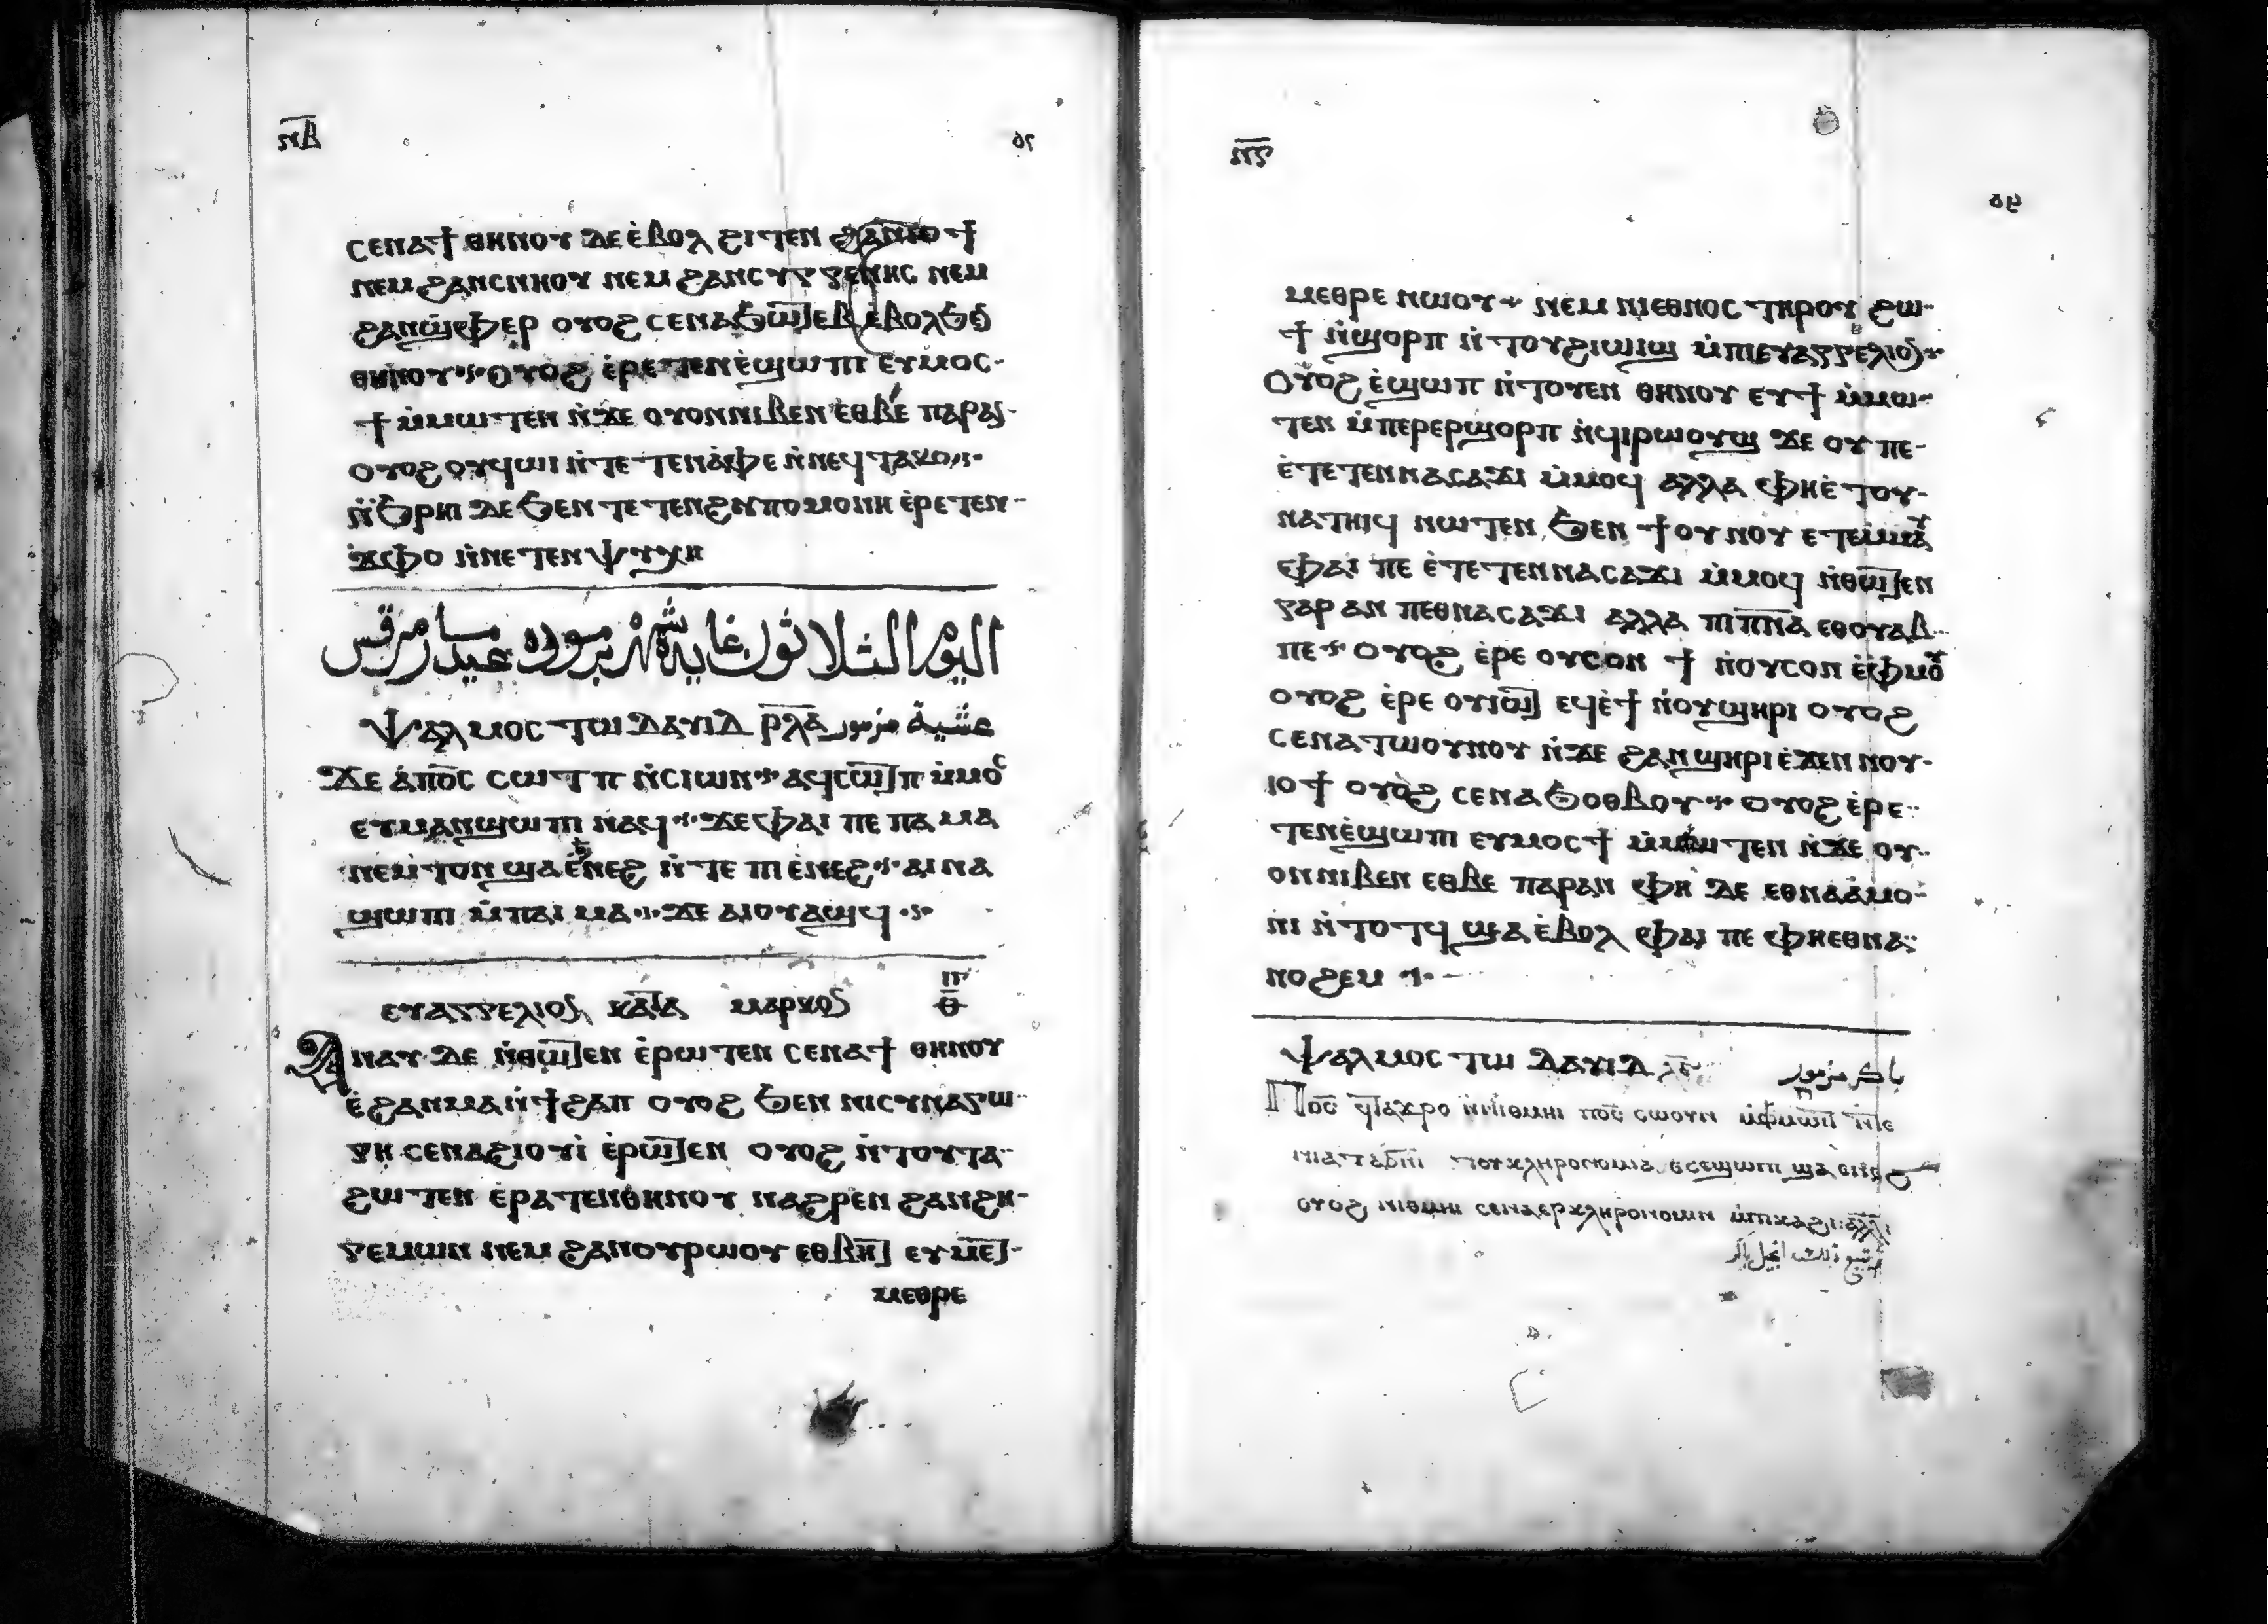 ⲥⲉⲛⲁϯ ⲑⲏⲛⲟⲩ ⲇⲉ ⲉ̀ⲃⲟⲗ ϩⲓⲧⲉⲛ ϩⲁⲛⲓⲟϯ
ⲛⲉⲙ ϩⲁⲛⲥⲛⲏⲟⲩ ⲛⲉⲙ ϩⲁⲛⲥⲩⲅⲅⲉⲛⲏⲥ ⲛⲉⲙ
ϩⲁⲛϣ̀ⲫⲏⲣ ⲟⲩⲟϩ ⲥⲉⲛⲁϧⲱⲧⲉⲃ ⲉ̀ⲃⲟⲗϧⲉ̅
ⲑⲏⲛⲟⲩ ⲟⲩⲟϩ ⲉ̀ⲣⲉⲧⲉⲛⲉ̀ϣⲱⲡⲓ ⲉⲩⲙⲟⲥ-
ϯ ⲙ̀ⲙⲱⲧⲉⲛ ⲛ̀ϫⲉ ⲟⲩⲟⲛⲛⲓⲃⲉⲛ ⲉⲑⲃⲉ ⲡⲁⲣⲁⲛ-
ⲟⲩⲟϩ ⲟⲩϥⲱⲓ ⲛ̀ⲧⲉ ⲧⲉⲛⲁ̀ⲫⲉ ⲛ̀ⲛⲉϥⲧⲁⲕⲟ
ⲛ̀ϧⲣⲏⲓ ⲇⲉ ϧⲉⲛ ⲧⲉⲧⲉⲛϩⲩⲡⲟⲙⲟⲛⲏ ⲉ̀ⲣⲉⲧⲉⲛ-
ϫ̀ⲫⲟ ⲛ̀ⲛⲉⲧⲉⲛⲯⲩⲭⲏ
اليوم الثلاثون غاية شهر برموده عيد مار مرقس مسا
ⲯⲁⲗⲙⲟⲥ ⲧⲱ ⲇⲁⲩⲓⲇ ⲣ̅ⲗ̅ⲁ̅ عشية مزمور
ϫⲉ ⲁ̀ⲡⲟ̅ⲥ̅ ⲥⲱⲧⲡ ⲛ̀ⲥⲓⲱⲛ ⲁϥⲥⲱⲧⲡ ⲙ̀ⲙⲟⲥ
ⲉⲩⲙⲁⲛϣⲱⲡⲓ ⲛⲁϥ ϫⲉ ⲫⲁⲓ ⲡⲉ ⲡⲁⲙⲁ
ⲛⲉⲙ̀ⲧⲟⲛ ϣⲁ ⲉ̀ⲛⲉϩ ⲛ̀ⲧⲉ ⲡⲓⲉ̀ⲛⲉϩ ⲁⲓⲛⲁ
ϣⲱⲡⲓ ⲙ̀ⲡⲁⲓⲙⲁ ϫⲉ ⲁⲓⲟⲩⲁϣϥ
ⲉⲩⲁⲅⲅⲉⲗⲓⲟⲛ ⲕⲁⲧⲁ ⲙⲁⲣⲕⲟⲛ
ⲁⲛⲁⲩ ⲇⲉ ⲛ̀ⲑⲱⲧⲉⲛ ⲉ̀ⲣⲱⲧⲉⲛ ⲥⲉⲛⲁϯ ⲑⲏⲛⲟⲩ
ⲉ̀ϩⲁⲛⲙⲁⲛ̀ϯϩⲁⲡ ⲟⲩⲟϩ ϧⲉⲛ ⲛⲓⲥⲩⲛⲁⲅⲱ-
ⲅⲏ ⲥⲉⲛⲁϩⲓⲟⲩⲓ̀ ⲉ̀ⲣⲱⲧⲉⲛ ⲟⲩⲟϩ ⲛ̀ⲧⲟⲩⲧⲁ-
ϩⲱⲧⲉⲛ ⲉ̀ⲣⲁⲧⲉⲛⲑⲏⲛⲟⲩ ⲛⲁϩⲣⲉⲛ ϩⲁⲛϩⲏ-
ⲅⲉⲙⲱⲛ ⲛⲉⲙ ϩⲁⲛⲟⲩⲣⲱⲟⲩ ⲉⲑⲃⲏⲧ ⲉⲩⲙⲉⲧ-
ⲙⲉⲑⲣⲉ
ⲙⲉⲑⲣⲉ ⲛⲱⲟⲩ ⲛⲉⲙ ⲛⲓⲉⲑⲛⲟⲥ ⲧⲏⲣⲟⲩ ϩⲱ-
ϯ ⲛ̀ϣⲟⲣⲡ ⲛ̀ⲧⲟⲩϩⲓⲱⲓϣ ⲙ̀ⲡⲓⲉⲩⲁⲅⲅⲉⲗⲓⲟⲛ
ⲟⲩⲟϩ ⲉ̀ϣⲱⲡ ⲛ̀ⲧⲟⲩⲉⲛ ⲑⲏⲛⲟⲩ ⲉⲩϯ ⲙ̀ⲙⲱ-
ⲧⲉⲛ ⲙ̀ⲡⲉⲣⲉⲣϣⲟⲣⲡ ⲛ̀ϥⲓⲣⲱⲟⲩϣ ϫⲉ ⲟⲩ ⲡⲉ-
ⲉ̀ⲧⲉⲧⲉⲛⲛⲁⲥⲁϫⲓ ⲙ̀ⲙⲟϥ ⲁⲗⲗⲁ ⲫⲏⲉ̀ⲧⲟⲩ-
ⲛⲁⲧⲏⲓϥ ⲛⲱⲧⲉⲛ ϧⲉⲛ ϯⲟⲩⲛⲟⲩ ⲉⲧⲉⲙ̀ⲙⲁⲩ
ⲫⲁⲓ ⲡⲉ ⲉ̀ⲧⲉⲧⲉⲛⲛⲁⲥⲁϫⲓ ⲙ̀ⲙⲟϥ ⲛ̀ⲑⲱⲧⲉⲛ
ⲅⲁⲣ ⲁⲛ ⲡⲉⲑⲛⲁⲥⲁϫⲓ ⲁⲗⲗⲁ ⲡⲓⲡ̅ⲛ̅ⲁ̅ ⲉⲑⲟⲩⲁⲃ
ⲡⲉ ⲟⲩⲟϩ ⲉ̀ⲣⲉ ⲟⲩⲥⲟⲛ ϯ ⲛ̀ⲟⲩⲥⲟⲛ ⲉ̀ⲫ̀ⲙⲟⲩ
ⲟⲩⲟϩ ⲉ̀ⲣⲉ ⲟⲩⲓⲱⲧ ⲉϥⲉ̀ϯ ⲛ̀ⲟⲩϣⲏⲣⲓ ⲟⲩⲟϩ
ⲥⲉⲛⲁⲧⲱⲟⲩⲛⲟⲩ ⲛ̀ϫⲉ ϩⲁⲛϣⲏⲣⲓ ⲉ̀ϫⲉⲛ ⲛⲟⲩ-
ⲓⲟϯ ⲟⲩⲟϩ ⲥⲉⲛⲁϧⲟⲑⲃⲟⲩ ⲟⲩⲟϩ ⲉ̀ⲣⲉ
ⲧⲉⲛⲉ̀ϣⲱⲡⲓ ⲉⲩⲙⲟⲥϯ ⲙ̀ⲙⲱⲧⲉⲛ ⲛ̀ϫⲉ ⲟⲩ-
ⲟⲛⲛⲓⲃⲉⲛ ⲉⲑⲃⲉ ⲡⲁⲣⲁⲛ ⲫⲏ ⲇⲉ ⲉⲑⲛⲁⲁ̀ⲙⲟ-
ⲛⲓ ⲛ̀ⲧⲟⲧϥ ϣⲁ ⲉ̀ⲃⲟⲗ ⲫⲁⲓ ⲡⲉ ⲫⲏⲉⲑⲛⲁ
ⲛⲟϩⲉⲙ
ⲯⲁⲗⲙⲟⲥ ⲧⲱ ⲇⲁⲩⲓⲇ باكر مزمور
ⲡⲟ̅ⲥ̅ ϥⲧⲁϫⲣⲟ ⲛ̀ⲛⲓⲑⲙⲏⲓ ⲡⲟ̅ⲥ̅ ⲥⲱⲟⲩⲛ ⲙ̀ⲫⲙⲱⲓⲧ ⲛ̀ⲧⲉ
ⲛⲓⲁⲧⲁϭⲛⲓ ⲧⲟⲩⲕⲗⲏⲣⲟⲛⲟⲙⲓⲁ ⲉⲥⲉϣⲱⲡⲓ ϣⲁ ⲉⲛⲉϩ
ⲟⲩⲟϩ ⲛⲓⲑⲙⲏⲓ ⲥⲉⲛⲁⲉⲣⲕⲗⲏⲣⲟⲛⲟⲙⲓⲛ ⲙ̀ⲡⲕⲁϩⲓ ⲁⲗⲗ
ذلك انجيل باكر